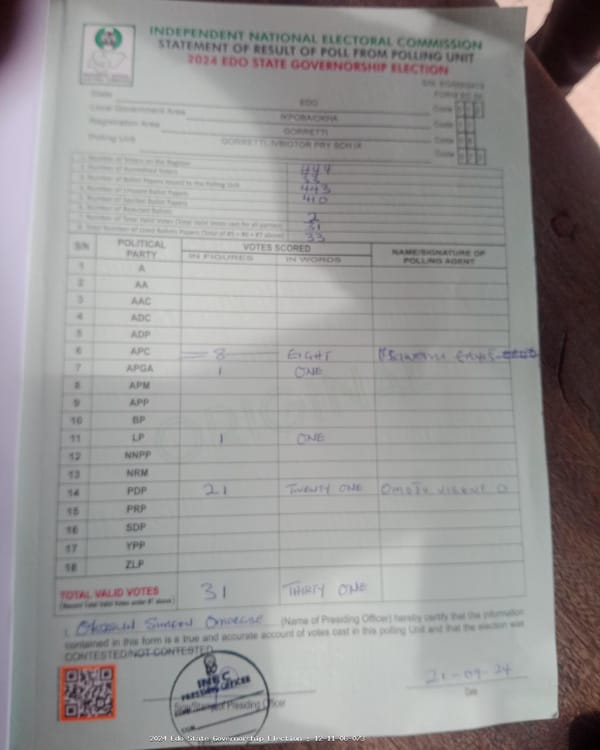 INDEPENDENT NATIONAL ELECTORAL COMMISSION
STATEMENT OF RESULT OF POLL FROM POLLING UNIT
2024 EDO STATE GOVERNORSHIP ELECTION
State EDO Code
Local Government Area IKPOBA/OKHA Code
Registration Area GORRETTI Code
Polling Unit Code
1. Number of Voters on the Register
2. Number of Accredited Voters 33
3. Number of Ballot Papers Issued to the Polling Unit 443
4. Number of Unused Ballot Papers 410
5. Number of Spoiled Ballot Papers
6. Number of Rejected Ballots 2
7. Number of Total Valid Votes (Total Valid Votes cast for all parties) 31
8. Total Number of Used Ballots Papers (Total of #5 + #6 + #7 above) 33
S/N POLITICAL PARTY VOTES SCORED NAME/SIGNATURE OF POLLING AGENT
IN FIGURES IN WORDS
1 A
2 AA
3 AAC
4 ADC
5 ADP
6 APC 8 EIGHT
7 APGA 1 ONE
8 APM
9 APP
10 BP
11 LP 1 ONE
12 NNPP
13 NRM
14 PDP 21 TWENTY ONE
15 PRP
16 SDP
17 YPP
18 ZLP
TOTAL VALID VOTES 31 THIRTY ONE
(Record Total Valid Votes under #7 above)
I, (Name of Presiding Officer) hereby certify that the information
contained in this form is a true and accurate account of votes cast in this polling Unit and that the election was
CONTESTED/NOT CONTESTED
INEC
PRESIDING OFFICER
21-09-24
Sign/Stamp of Presiding Officer Date
2024 Edo State Governorship Election : 12-11-06-073